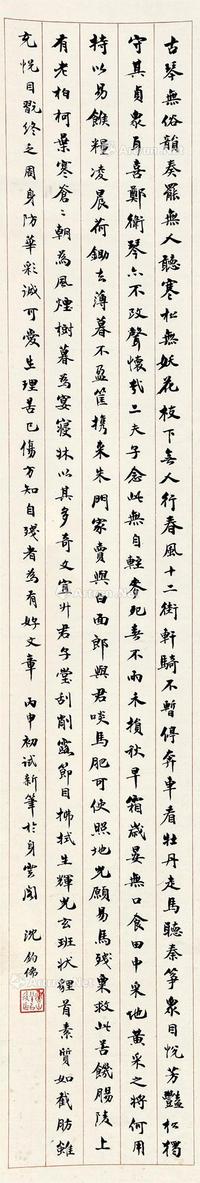 古琴無俗韻奏罷無人聽寒松無妖花枝下無人行春風十二街軒騎不暫停奔車看牡丹走馬聽秦箏眾目悅芳豔松獨
守其貞眾耳喜鄭衛琴亦不改聲懷哉二夫子念此無自輕麥死春不雨禾損秋早霜歲晏無口食田中采地黃采之將何用
持以易餱糧凌晨荷鋤去薄暮不盈筐攜來朱門家賣與白面郎與君啖馬肥可使照地光願易馬殘粟救此苦饑腸陵上
有老柏柯葉寒蒼〻朝為風煙樹暮為宴寢牀以其多奇文宜升君子堂刮削露節目拂拭生輝光玄班狀貍首素質如截肪雖
充悅目翫終乏周身防華彩誠可愛生理苦已傷方知自殘者為有好文章 丙申初試新筆於身雲閣 沈